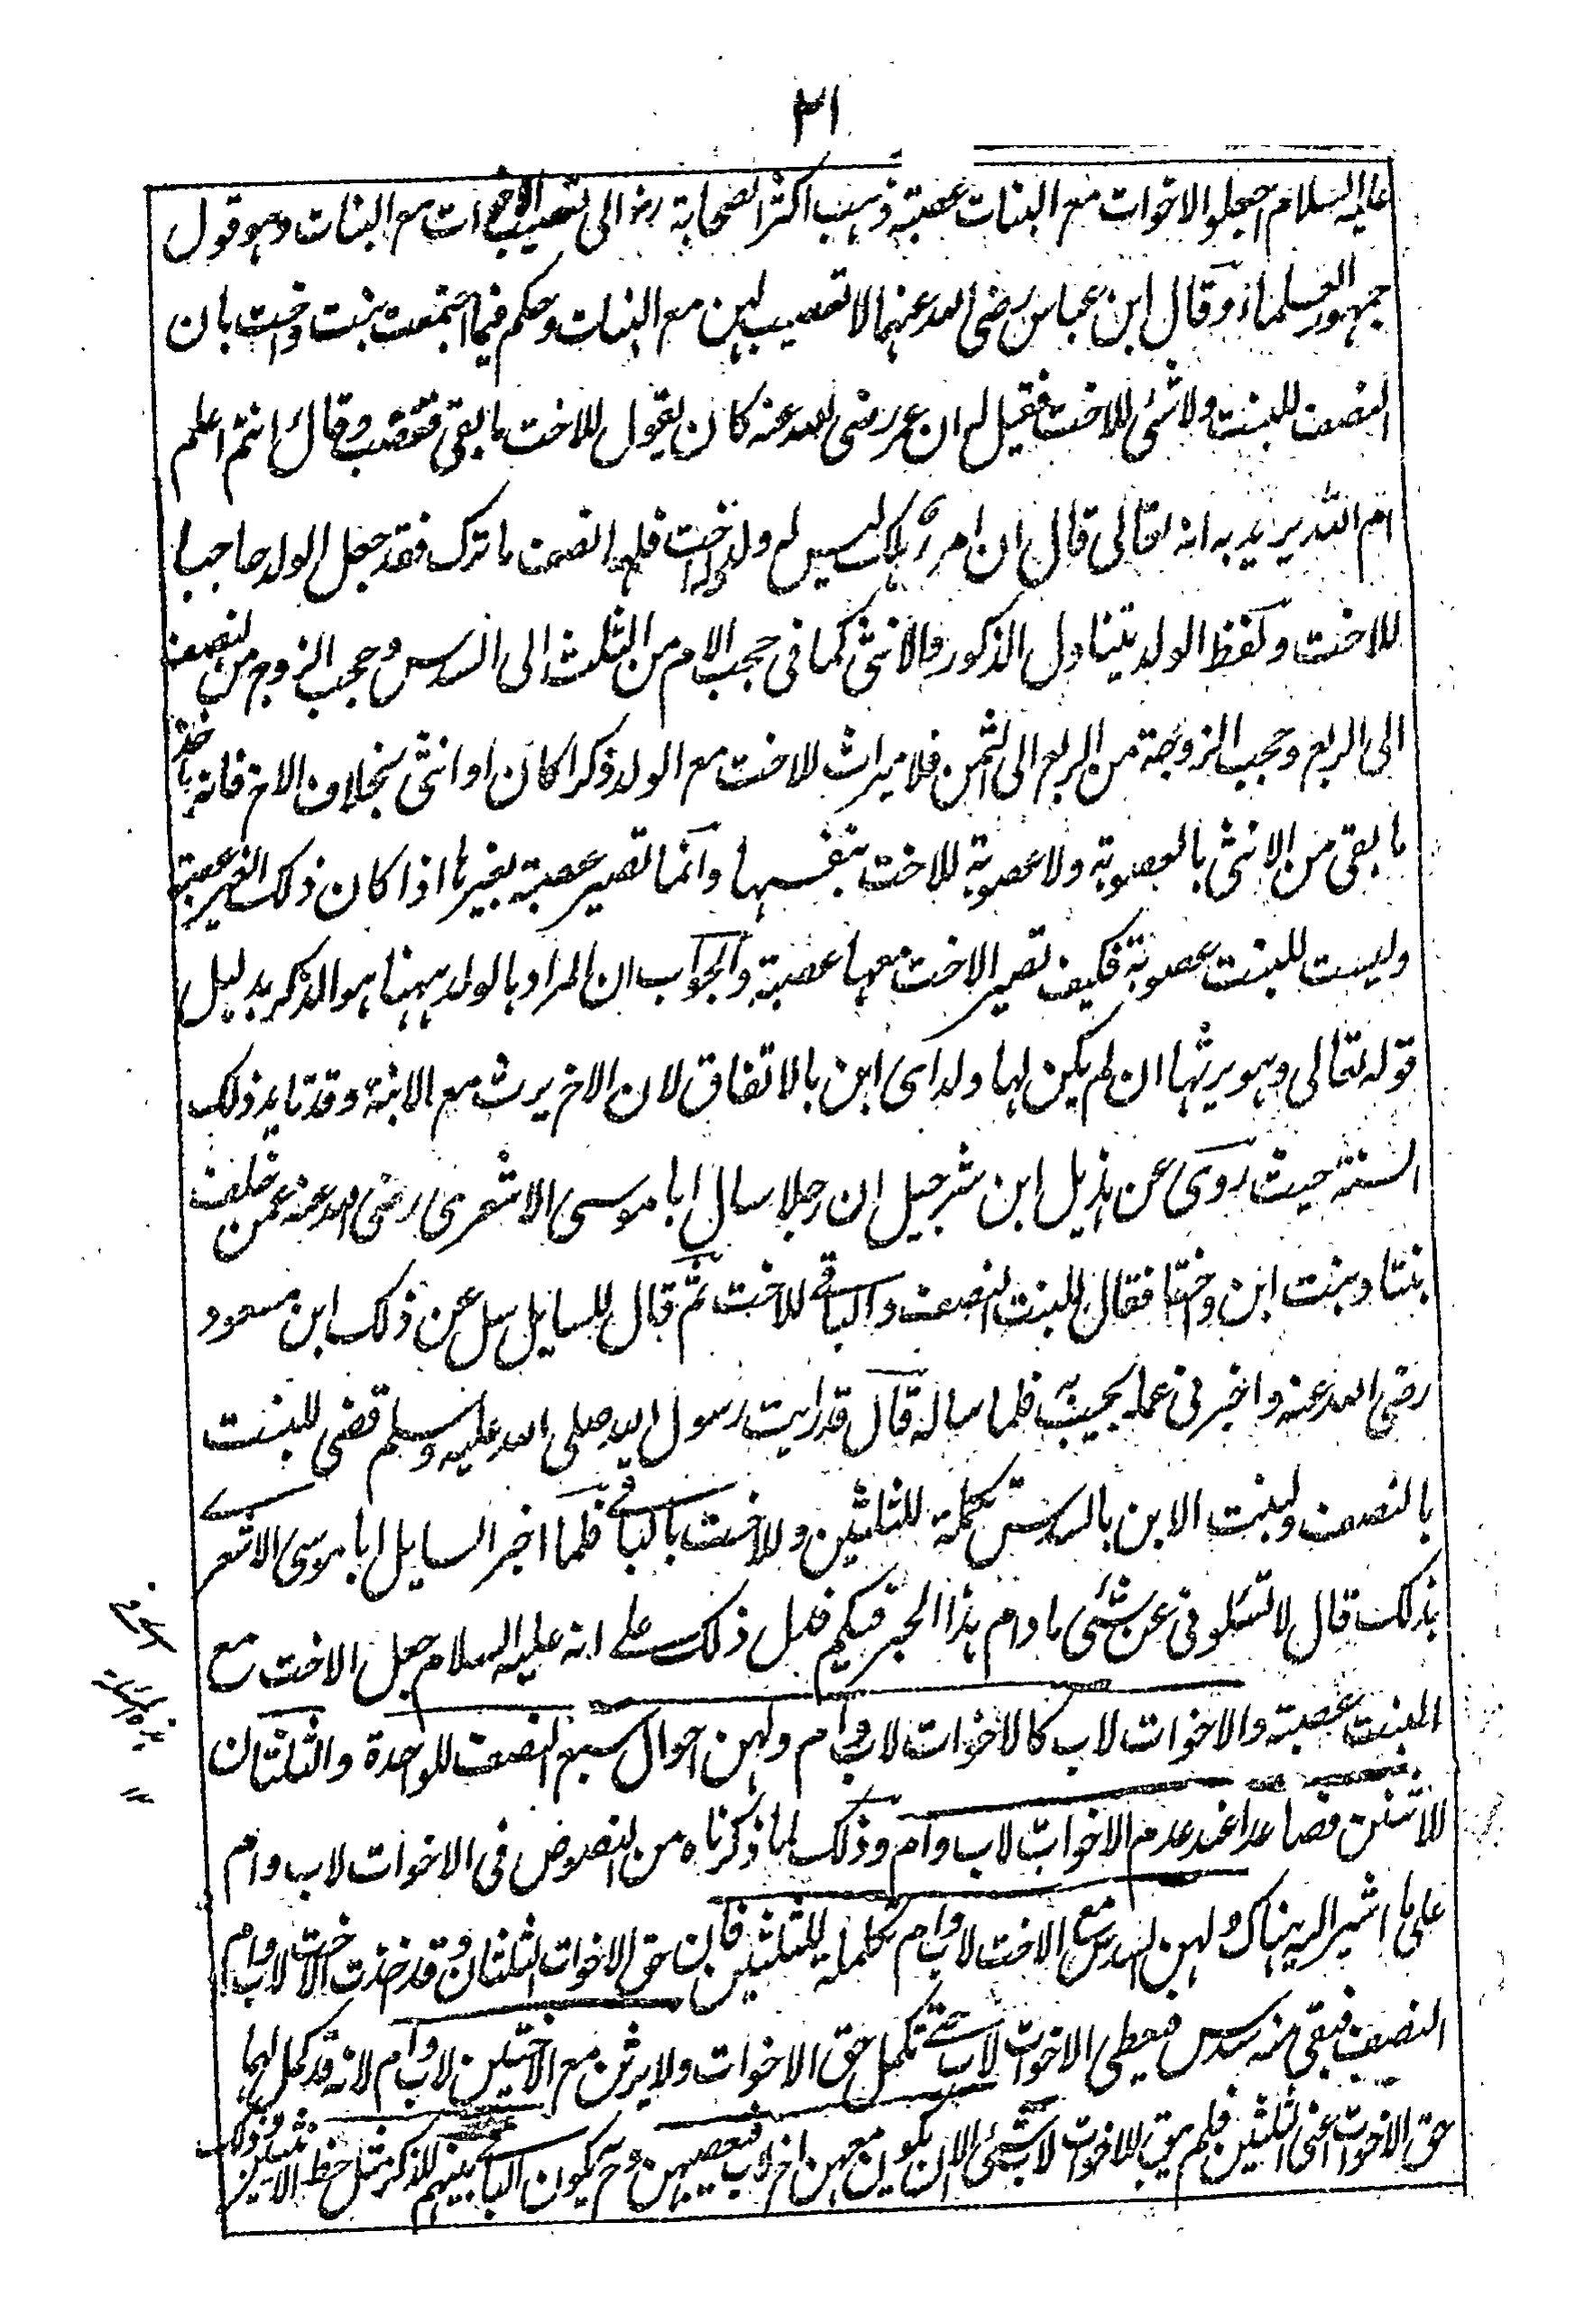 ٢١
عليه السلام اجعلوا الاخوات مع البنات عصبة وذهب اكثر الصحابة رض الى تعصيب الاخوات مع البنات وهو قول
جمهور العلماء وقال ابن عباس رضى الله عنهما لا تعصيب لهن مع البنات وحكم فيما اجتمعت بنت واخت بان
النصف للبنت ولا شئ للاخت فقيل له ان عمر رضى الله عنه كان يقول للاخت ما بقى فغضب وقال أانتم اعلم
ام الله يريد به انه تعالى قال ان امرؤ هلك ليس له ولد وله اخت فلها نصف ما ترك فقد جعل الولد حاجبا
للاخت ولفظ الولد يتناول الذكور والانثى كما فى حجب الام من الثلث الى السدس وحجب الزوج من النصف
الى الربع وحجب الزوجة من الربع الى الثمن فلا ميراث للاخت مع الولد ذكرا كان او انثى بخلاف الاخ فانه ياخذ
ما بقى من الانثى بالعصوبة ولا عصوبة للاخت بنفسها وانما تصير عصبة بغيرها اذا كان ذلك الغير عصبة
وليست للبنت عصوبة فكيف تصير الاخت معها عصبة والجواب ان المراد بالولد ههنا هو الذكر بدليل
قوله تعالى وهو يرثها ان لم يكن لها ولد اى ابن بالاتفاق لان الاخ يرث مع الابنة وقد تايد ذلك
السنة حيث روى عن هذيل ابن شرحبيل ان رجلا سال ابا موسى الاشعرى رضى الله عنه عمن خلف
بنتا وبنت ابن واختا فقال للبنت النصف والباقے للاخت ثم قال للسايل سل عن ذلك ابن مسعود
رضى الله عنه واخبرنى عما يجيب به فلما ساله قال قد رايت رسول الله صلى الله عليه وسلم قضى للبنت
بالنصف ولبنت الابن بالسدس تكملة للثلثين وللاخت بالباقے فلما اخبر السايل ابا موسى الاشعرے
بذلك قال لا تسئلونى عن شئى ما دام هذا الحبر فيكم فدل ذلك علے انه عليه السلام جعل الاخت مع
البنت عصبة والاخوات لاب كالاخوات لاب وام ولهن احوال سبع النصف للواحدة والثلثان
للاثنتين فصاعدا عند عدم الاخوات لاب وام وذلك لما ذكرناه من النصوص فى الاخوات لاب وام
على ما اشير اليه هناك ولهن السدس مع الاخت لاب وام تكملة للثلثين فان حق الاخوات الثلثان وقد اخذت الاخت لاب وام
النصف فبقى منه سدس فيعطى الاخوات لاب حتے تكمل حق الاخوات ولا يرثن مع الاختين لاب وام لانه قد كمل لهما
حق الاخوات اعنى الثلثين فلم يبق للاخوات لاب شئى الا ان يكون معهن اخ لاب فيعصبهن وح يكون الباقے بينهم للذكر مثل حظ الانثيين وذلك